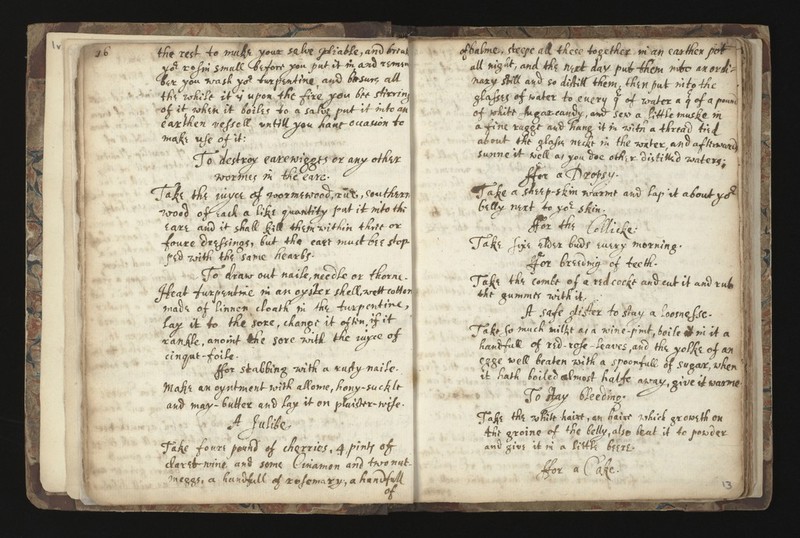 16
the rest to make your salve pliable, and
yor rosin small before you put it in and remem
ber you wash yor turpentine, and besure all
the while it is upon the fire you bee stirring
of it when it boiles to a salve put it into an
earthen vessell untill you have ocasion to
make use of it:
To destroy earewigges or any other
wormes in the eare.
Take the iuyce of wormewood, rue, southern
wood of each a like quantity put it into the
eare and it shall kill them within three or
foure dressings, but the eare must bee stop
ped with the same hearbs.
To draw out naile, needle or thorne.
Heat turpentine in an oyster shell, wett cotton
made of linnen cloath in the turpentine,
lay it to the sore, change it often, if it
rankle, anoint the sore with the iuyce of
cinque-foile.
ffor stabbing with a rusty naile.
Make an oyntment with allome, hony-suckle
and may-butter and lay it on plaister-wise.
A Julibe.
Take foure pound of cherries, 4 pints of
claret-wine and some Cinamon and two nut-
meggs, a handfull of rosemary, a handfull
of
of balme, steepe all these together in an earthen pot
all night, and the next day put them into an ordi-
nary still and so distill them, then put into the
glasses of water to every q of water a q of a pound
of white sugar-candy, and sew a little muske in
a fine ragge and hang it in with a thread tied
about the glass neck in the water, and afterward
sunne it well as you doe other distilled waters;
ffor a Dropsy.
Take a sheep-skin warme and lap it about yor
belly next to yor skin.
ffor the Collicke.
Take sixe elder buds every morning.
ffor breeding of teeth.
Take the combe of a red cocke and cut it and rub
the gummes with it.
A safe to stay a loosnesse.
Take so much milke as a wine-pint, boile in it a
handfull of red-rose-leaves, and the yolke of an
egge well beaten with a spoonfull of sugar, when
it hath boiled almost halfe away, give it warme.
To stay bleeding.
Take the white haire, an haire which groweth on
the groine of the belly, also beat it to powder
and give it in a little beere.
ffor a Cake.
13